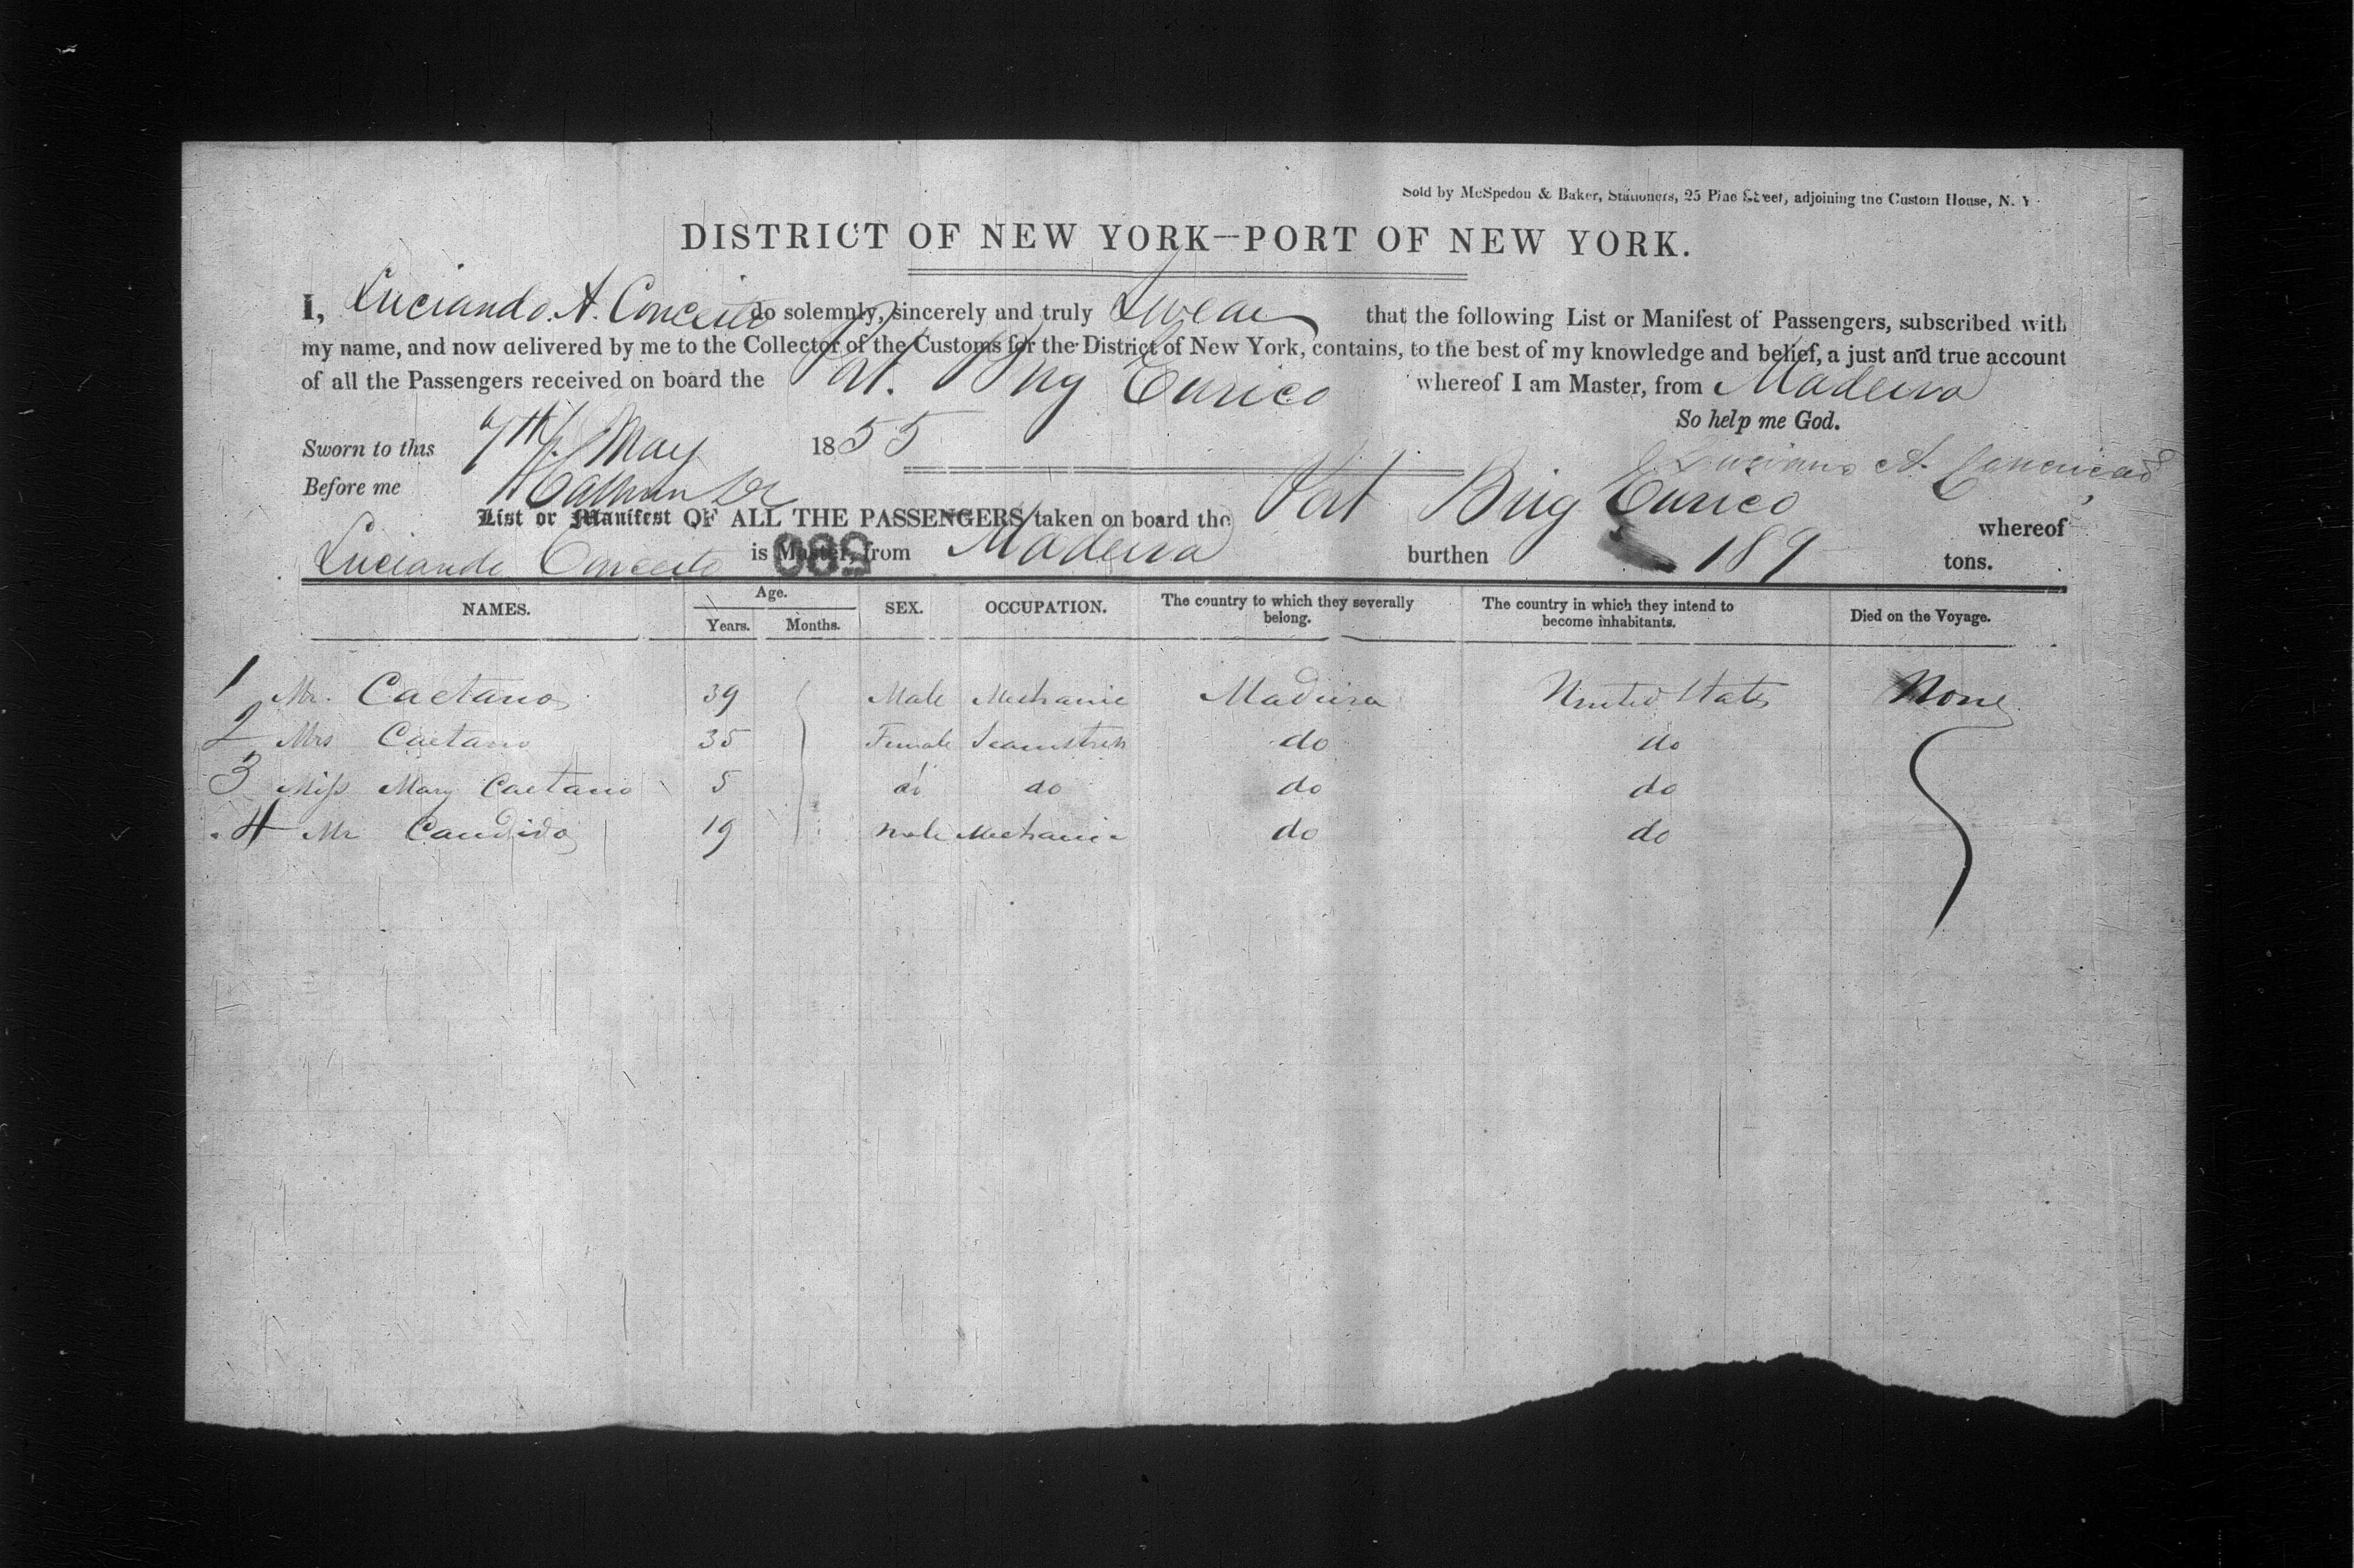 Sold by McSpedon & Baker, Stationers, 25 Pine Street, adjoining the Custom House, N. Y.
DISTRICT OF NEW YORK—PORT OF NEW YORK.
I, Luciando. A. Conceito do solemnly, sincerely and truly Swear that the following List or Manifest of Passengers, subscribed with
my name, and now delivered by me to the Collector of the Customs for the District of New York, contains, to the best of my knowledge and belief, a just and true account
of all the Passengers received on board the Pot. Brig Eurico whereof I am Master, from Madeira
So help me God.
Sworn to this 7th May 1855
Luciano A.
Before me
List or Manifest OF ALL THE PASSENGERS taken on board the Port Brig Eurico whereof
Luciando Conceito is Master, from Madeira burthen 189 tons.
NAMES. Age. Years. Months. SEX. OCCUPATION. The country to which they severally belong. The country in which they intend to become inhabitants. Died on the Voyage.
1 Mr. Caetano 39 Male Mechanic Madeira United States None
2 Mrs Caetano 35 Female Seamstress do do
3 Miss Mary Caetano 5 do do do do
4 Mr Candido 19 male Mechanic do do